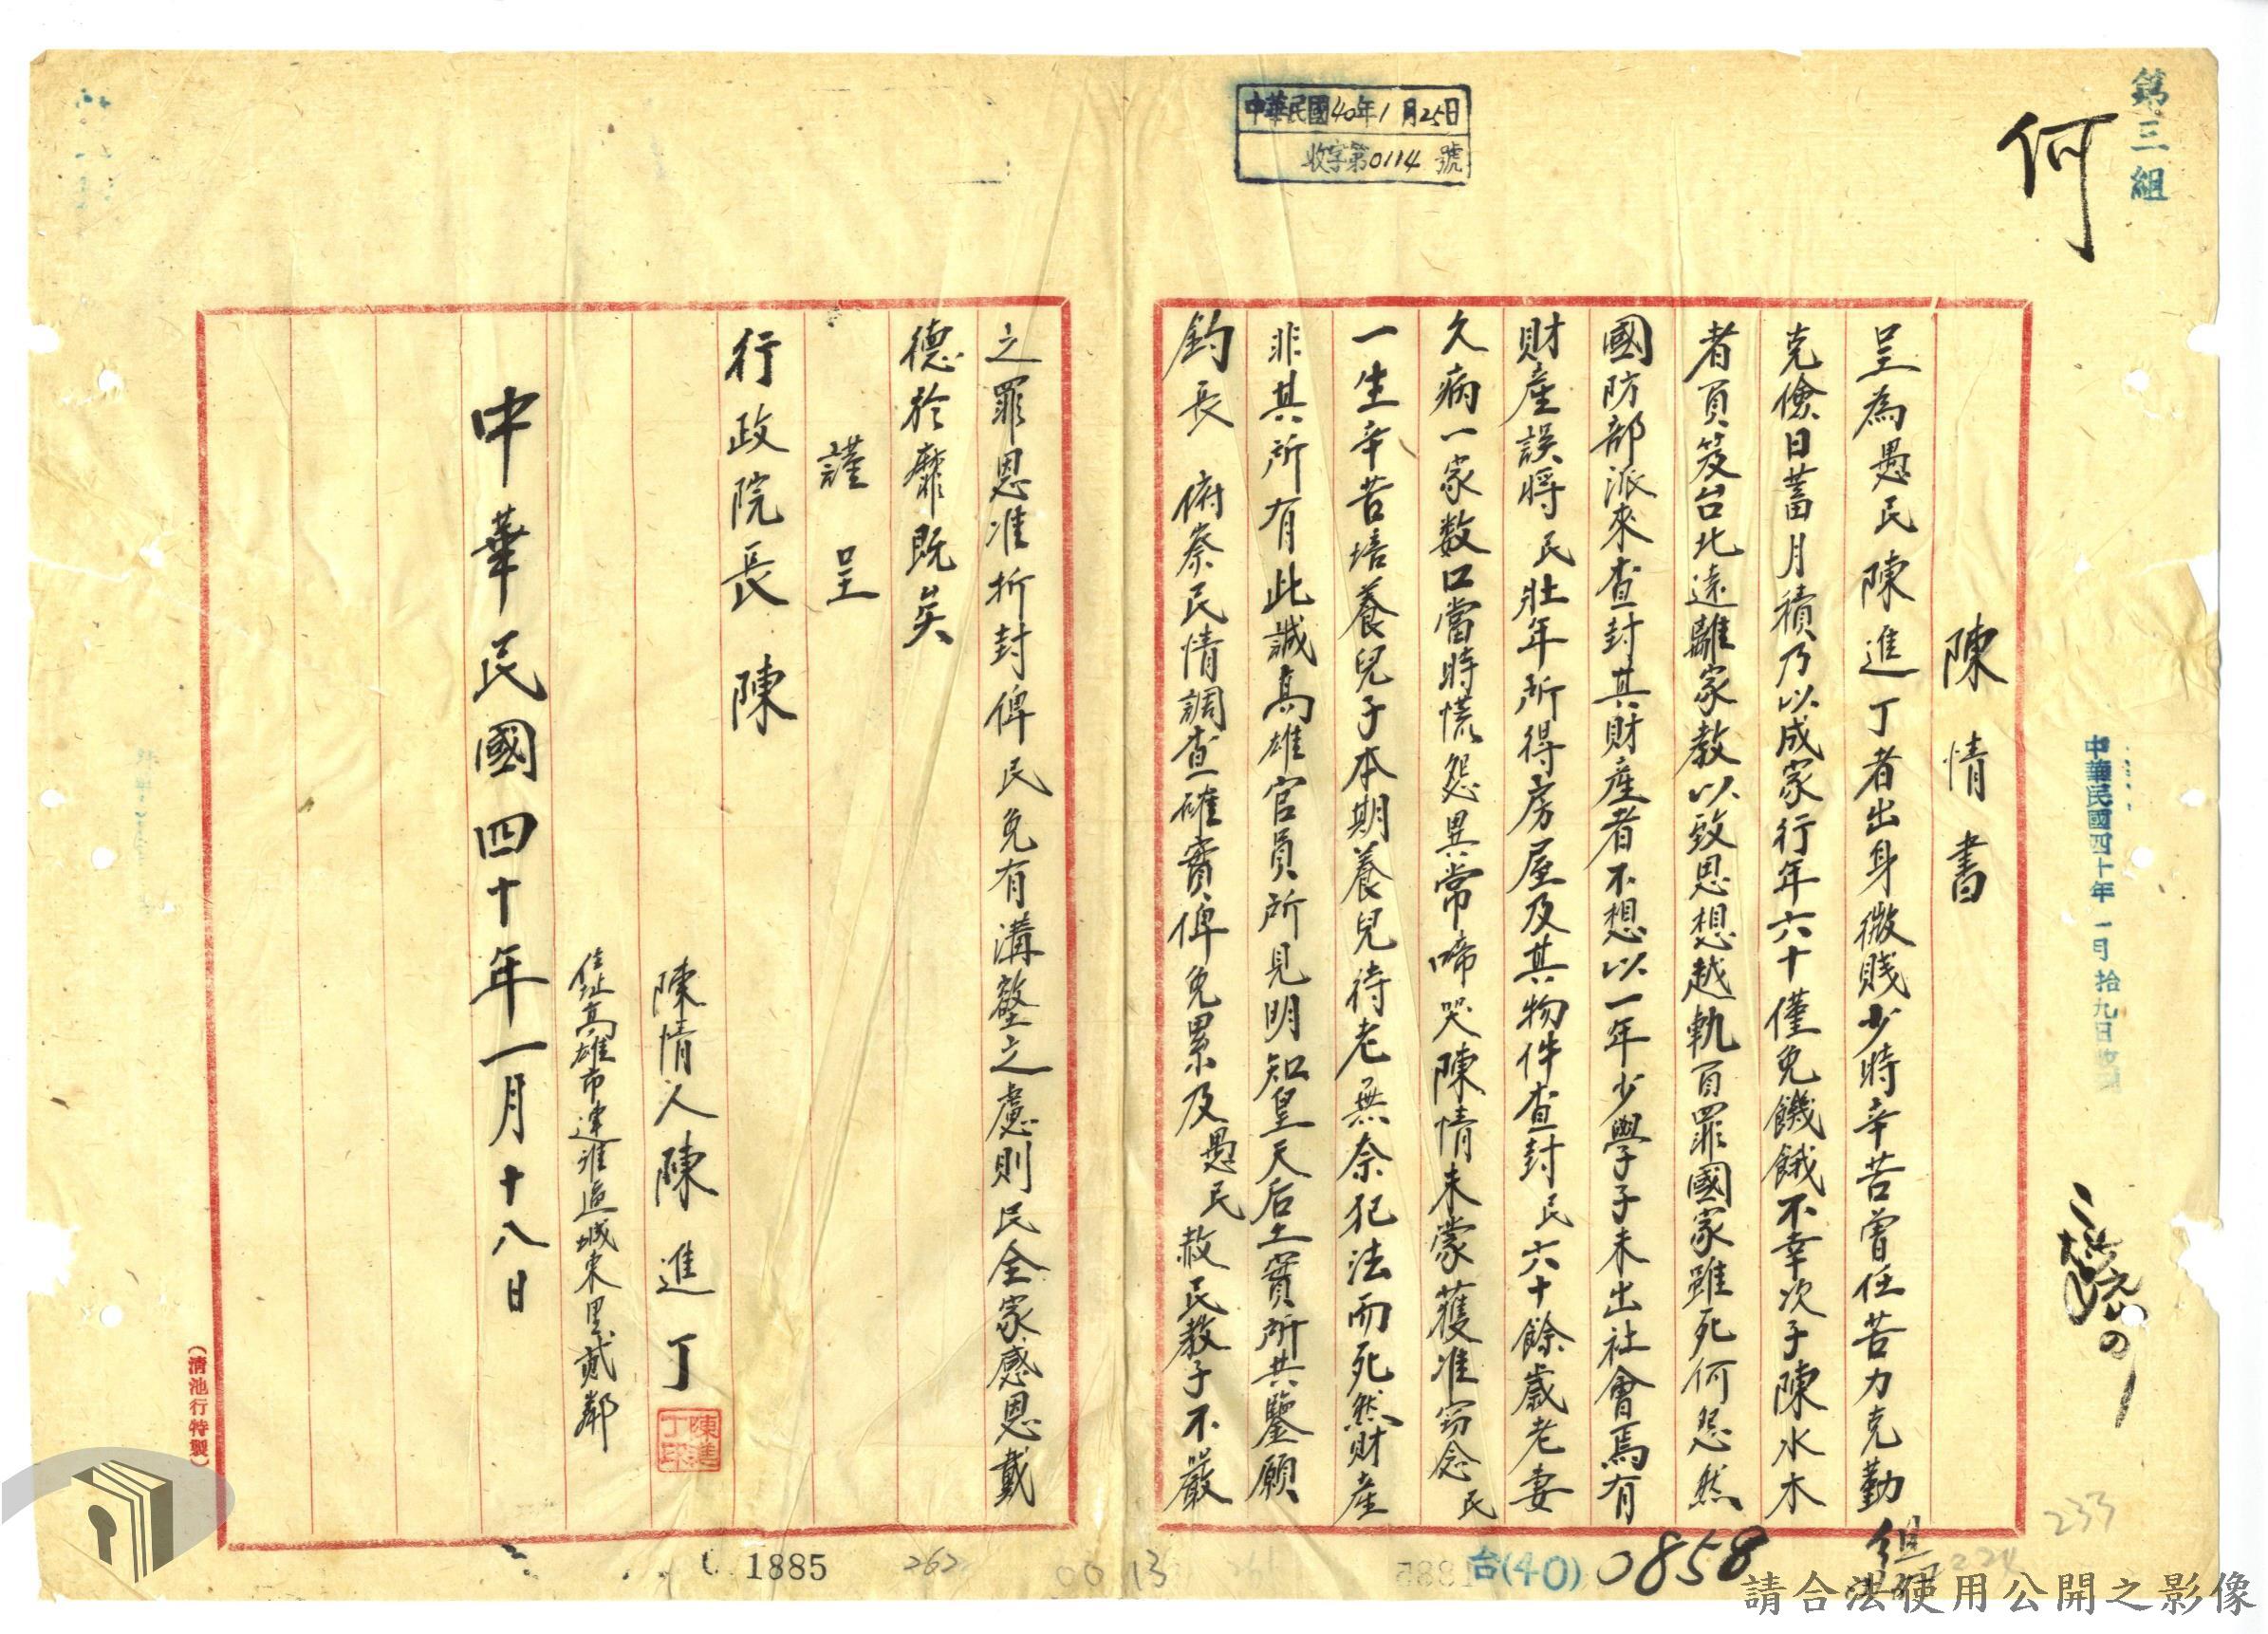 第三組
何
中華民國40年1月25日
收字第0114號
中華民國四十年一月拾九日收
陳情書
呈為愚民陳進丁者出身微賤少時辛苦曾任苦力克勤
克儉日蓄月積乃以成家行年六十僅免饑餓不幸次子陳水木
者負笈台北遠離家教以致思想越軌負罪國家雖死何怨然
國防部派來查封其財產者不想以一年少學子未出社會焉有
財產誤將民壯年所得房屋及其物件查封民六十餘歲老妻
久病一家数口當時慌怨異常啼哭陳情未蒙獲准窃念民
一生辛苦培養兒子本期養兒待老無奈犯法而死然財產
非其所有此誠高雄官員所見明知皇天后土實所共鑒願
鈞長 俯察民情調查確實俾免累及愚民赦民教子不嚴
之罪恩准折封俾民免有溝壑之慮則民全家感恩戴
德於靡既矣
謹呈
行政院長 陳
陳情人陳進丁
陳進丁印
住址高雄市連雅區城東里貳鄰
中華民國四十年一月十八日
(清池行特製)
1885
262
00 13
261
台(40) 0858
組
233
224
請合法使用公開之影像